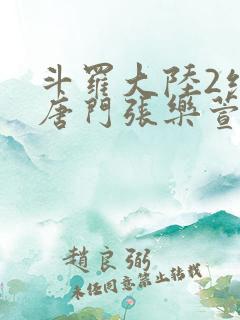 斗羅大陸2絕
唐門張樂萱
趙良弼
未經同意禁止轉載